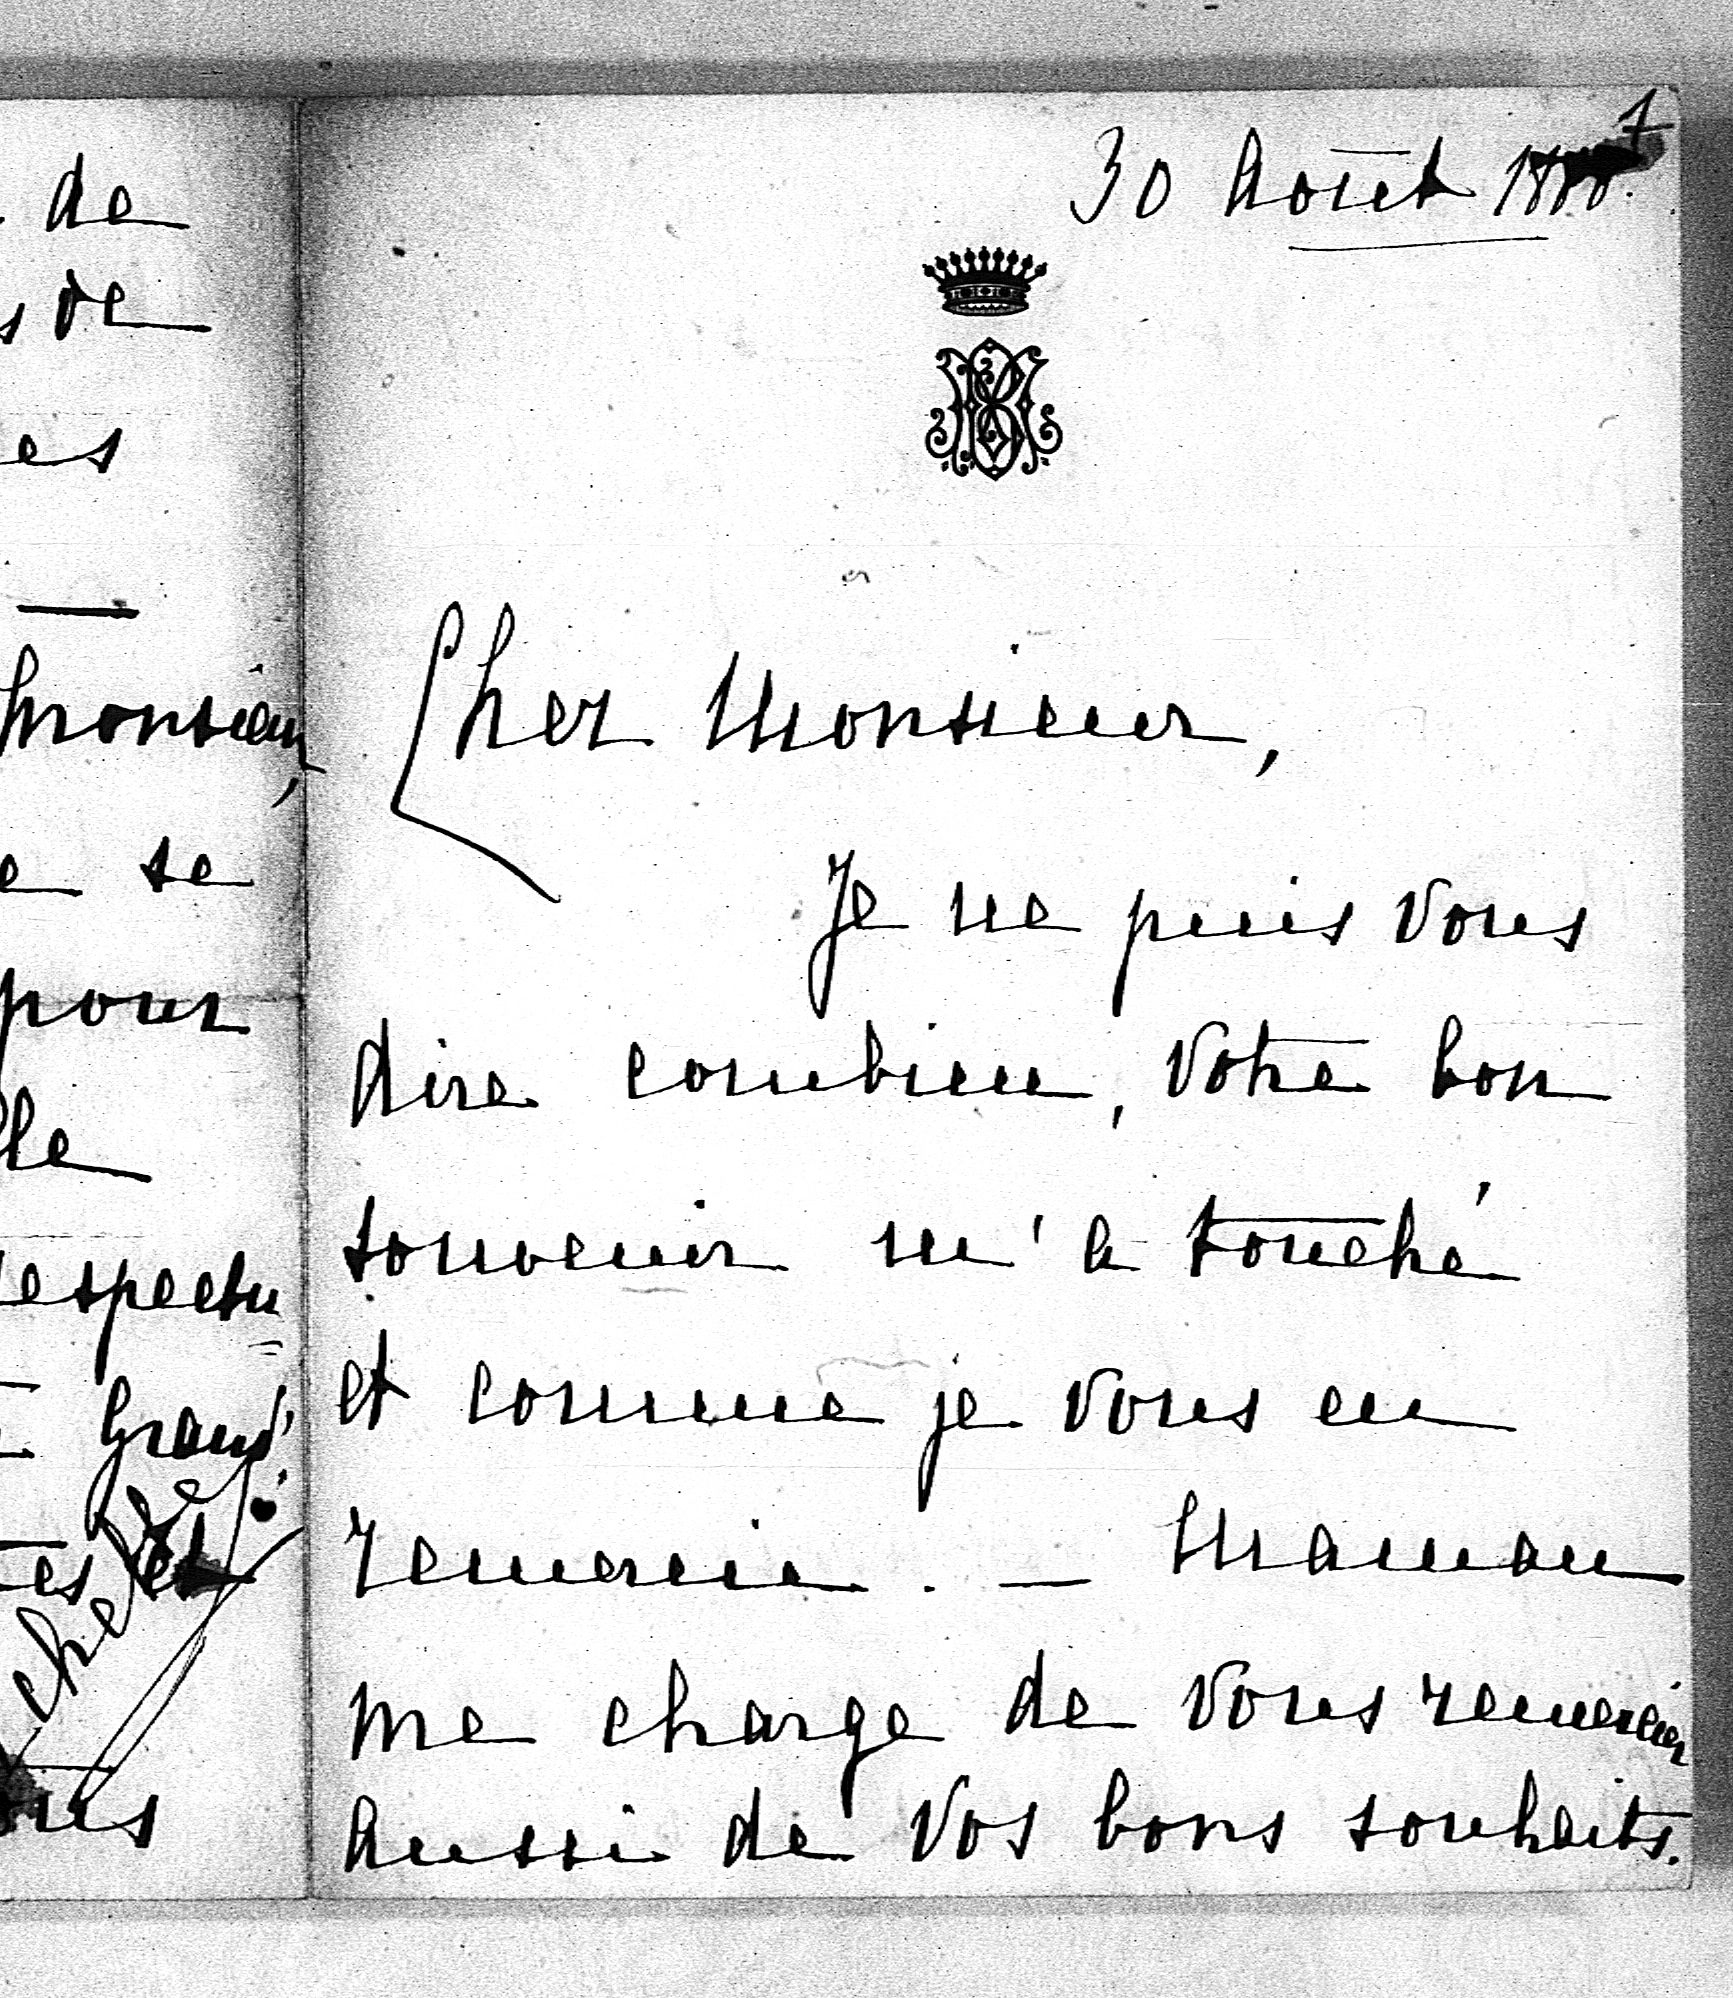 de
de
es
monsieur,
se
pour
le
respectu
Grand'
es et
us
1
30 Août 1880.
Cher Monsieur,
Je ne puis vous
dire combien, votre bon
souvenir m'a touché
et comme je vous en
remercie. — Maman
me charge de vous remercier
aussi de vos bons souhaits.